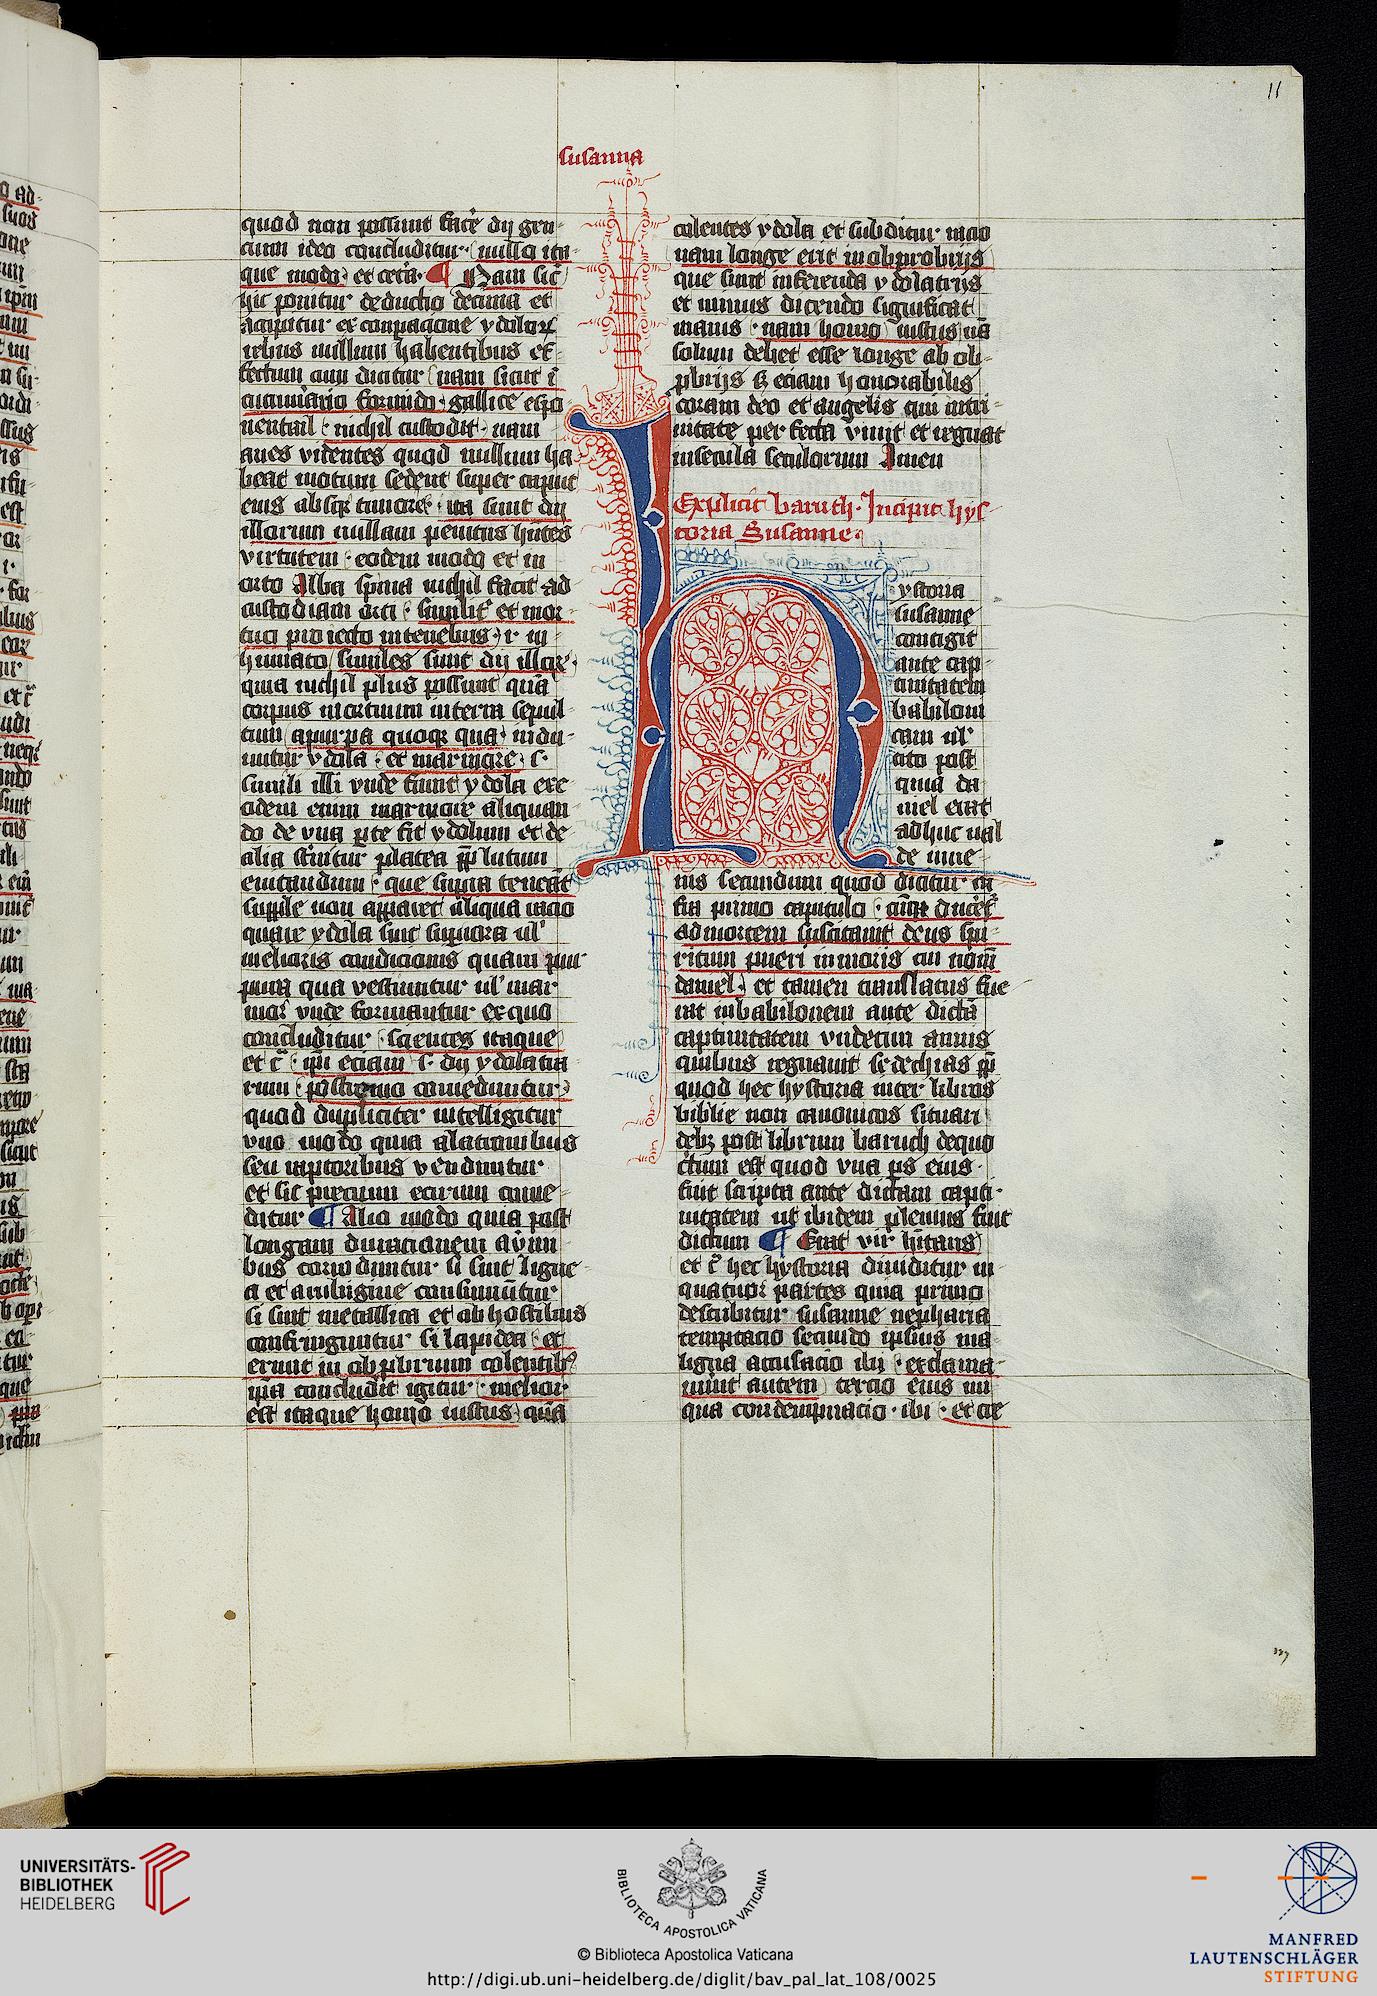 11
susanna
quod non possunt facere dij gen-
cium ideo concluditur nullo ita-
que modo et cetera ¶ Nam sic
hic ponitur deductio decima et
accipitur ex comparacione ydolorum
rebus nullum habentibus ef-
fectum cum dicitur nam sicut in
cucumerario formido gallice espo
uental nichil custodit nam
aues videntes quod nullum ha
beat motum sedent super caput
eius absque timore ita sunt dij
illorum nullam penitus habentes
virtutem eodem modo et in
orto Alba spina nichil facit ad
custodiam orti similiter et mor-
tuo proiecto in tenebris i in
humato similes sunt dij illorum
quia nichil plus possunt quam
corpus mortuum in terra sepul
tum a purpura quoque que indu-
untur ydola et marmore s
simili illi vnde fiunt ydola exe
odem enim marmore aliquan
do de vna parte fit ydolum et de
alia sternitur platea propter lutum
euitandum que supra
supple non apparet aliqua racio
quare ydola sint superiora uel
melioris condicionis quam pur
pura qua vestiuntur uel mar
mor vnde formantur ex quo
concluditur scientes itaque
et c ipsi eciam s dij ydolatra
rum postremo comeduntur
quod dupliciter intelligitur
vno modo quia a latronibus
seu raptoribus venduntur
et sic precium eorum come
ditur ¶ Alio modo quia post
longam duracionem a vermi
bus corroduntur si sint lignea
a et a rubigine consumuntur
si sint metallica et ab hostibus
confringuntur si lapidea et
erunt in obprobrium colentibus
ipsa concludit igitur melior
est itaque homo iustus quam
colentes ydola et subditur racio
nam longe erit in obprobrijs
que sunt inferenda ydolatris
et minus dicendo significat
maius nam homo iustus non
solum debet esse longe ab ob-
probrijs sed eciam honorabilis
coram deo et angelis qui in tri-
nitate perfecta viuit et regnat
in secula seculorum Amen
Explicit baruch. Incipit hys
toria Susanne.
Hystoria
susanne
contigit
ante cap-
tiuitatem
babiloni
cam uel
cito post
quia da
niel erat
adhuc ual
de iuue-
nis secundum quod dicitur in
fra primo capitulo cumque duceretur
ad mortem suscitauit deus spi-
ritum pueri iunioris cui nomen
daniel et tamen translatus fue
rat in babilonem ante dictam
captiuitatem vndecim annis
quibus regnauit sedechias propter
quod hec hystoria inter libros
biblie non canonicos situari
debet post librum baruch de quo
dictum est quod vna pars eius
fuit scripta ante dictam capti-
uitatem ut ibidem plenius fuit
dictum ¶ Erat vir habitans
et c hec hystoria diuiditur in
quatuor partes quia primo
describitur susanne nepharia
temptacio secundo ipsius ma
ligna accusacio ibi exclama-
uerunt autem tercio eius ini
qua condempnacio ibi et cre
UNIVERSITÄTS-
BIBLIOTHEK
HEIDELBERG
BIBLIOTECA APOSTOLICA VATICANA
© Biblioteca Apostolica Vaticana
http://digi.ub.uni-heidelberg.de/diglit/bav_pal_lat_108/0025
MANFRED
LAUTENSCHLÄGER
STIFTUNG